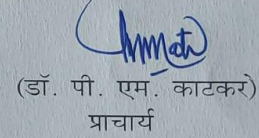 (डॉ. पी. एम. काटकर)
प्राचार्य